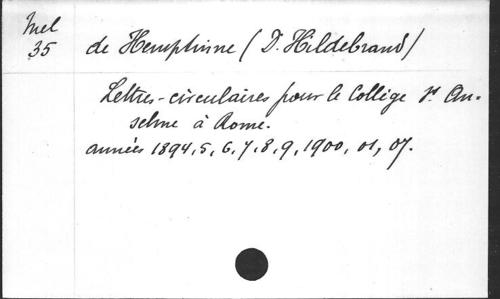 Mel
35
de Hemptinne (D. Hildebrand)
Lettres-circulaires pour le Collège St An-
selme à Rome.
années 1894, 5, 6, 7, 8, 9, 1900, 01, 07.